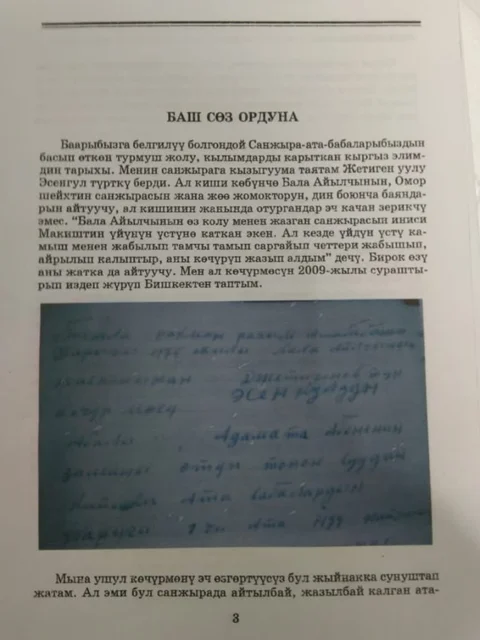 БАШ СӨЗ ОРДУНА
Баарыбызга белгилүү болгондой Санжыра-ата-бабаларыбыздын
басып өткөн турмуш жолу, кылымдарды карыткан кыргыз элим-
дин тарыхы. Менин санжырага кызыгуума таятам Жетиген уулу
Эсенгул түрткү берди. Ал киши көбүнчө Бала Айылчынын, Омор
шейхтин санжырасын жана жөө жомокторун, дин боюнча баянда-
рын айтуучу, ал кишинин жанында отургандар эч качан зерикчү
эмес. “Бала Айылчынын өз колу менен жазган санжырасын иниси
Макиштин үйүнүн үстүнө каткан экен. Ал кезде үйдүн үстү ка-
мыш менен жабылып тамчы тамып саргайып четтери жабышып,
айрылып калыптыр, аны көчүрүп жазып алдым” дечү. Бирок өзү
аны жатка да айтуучу. Мен ал көчүрмөсүн 2009-жылы сурашты-
рып издеп жүрүп Бишкектен таптым.
ЭСЕН
Адам ата
топон
Ата бабалардын
Ата
Мына ушул көчүрмөнү эч өзгөртүүсүз бул жыйнакка сунуштап
жатам. Ал эми бул санжырада айтылбай, жазылбай калган ата-
3